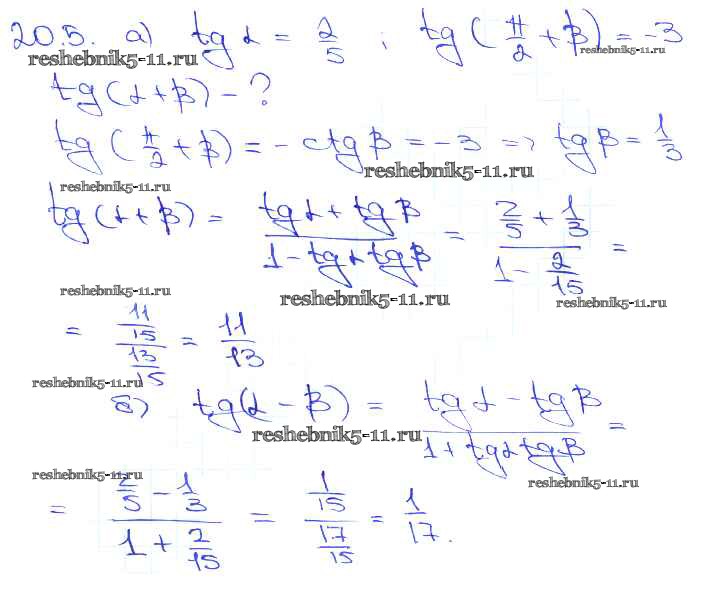 20.5. а) tg α = 2/5 ; tg(π/2 + β) = -3
reshebnik5-11.ru reshebnik5-11.ru
tg(α+β) - ?
tg(π/2 + β) = -ctg β = -3 => tg β = 1/3
reshebnik5-11.ru
reshebnik5-11.ru
tg(α+β) = (tg α + tg β)/(1 - tg α tg β) = (2/5 + 1/3)/(1 - 2/15) =
reshebnik5-11.ru reshebnik5-11.ru reshebnik5-11.ru
= (11/15)/(13/15) = 11/13
reshebnik5-11.ru
б) tg(α - β) = (tg α - tg β)/(1 + tg α tg β) =
reshebnik5-11.ru
reshebnik5-11.ru reshebnik5-11.ru
= (2/5 - 1/3)/(1 + 2/15) = (1/15)/(17/15) = 1/17.